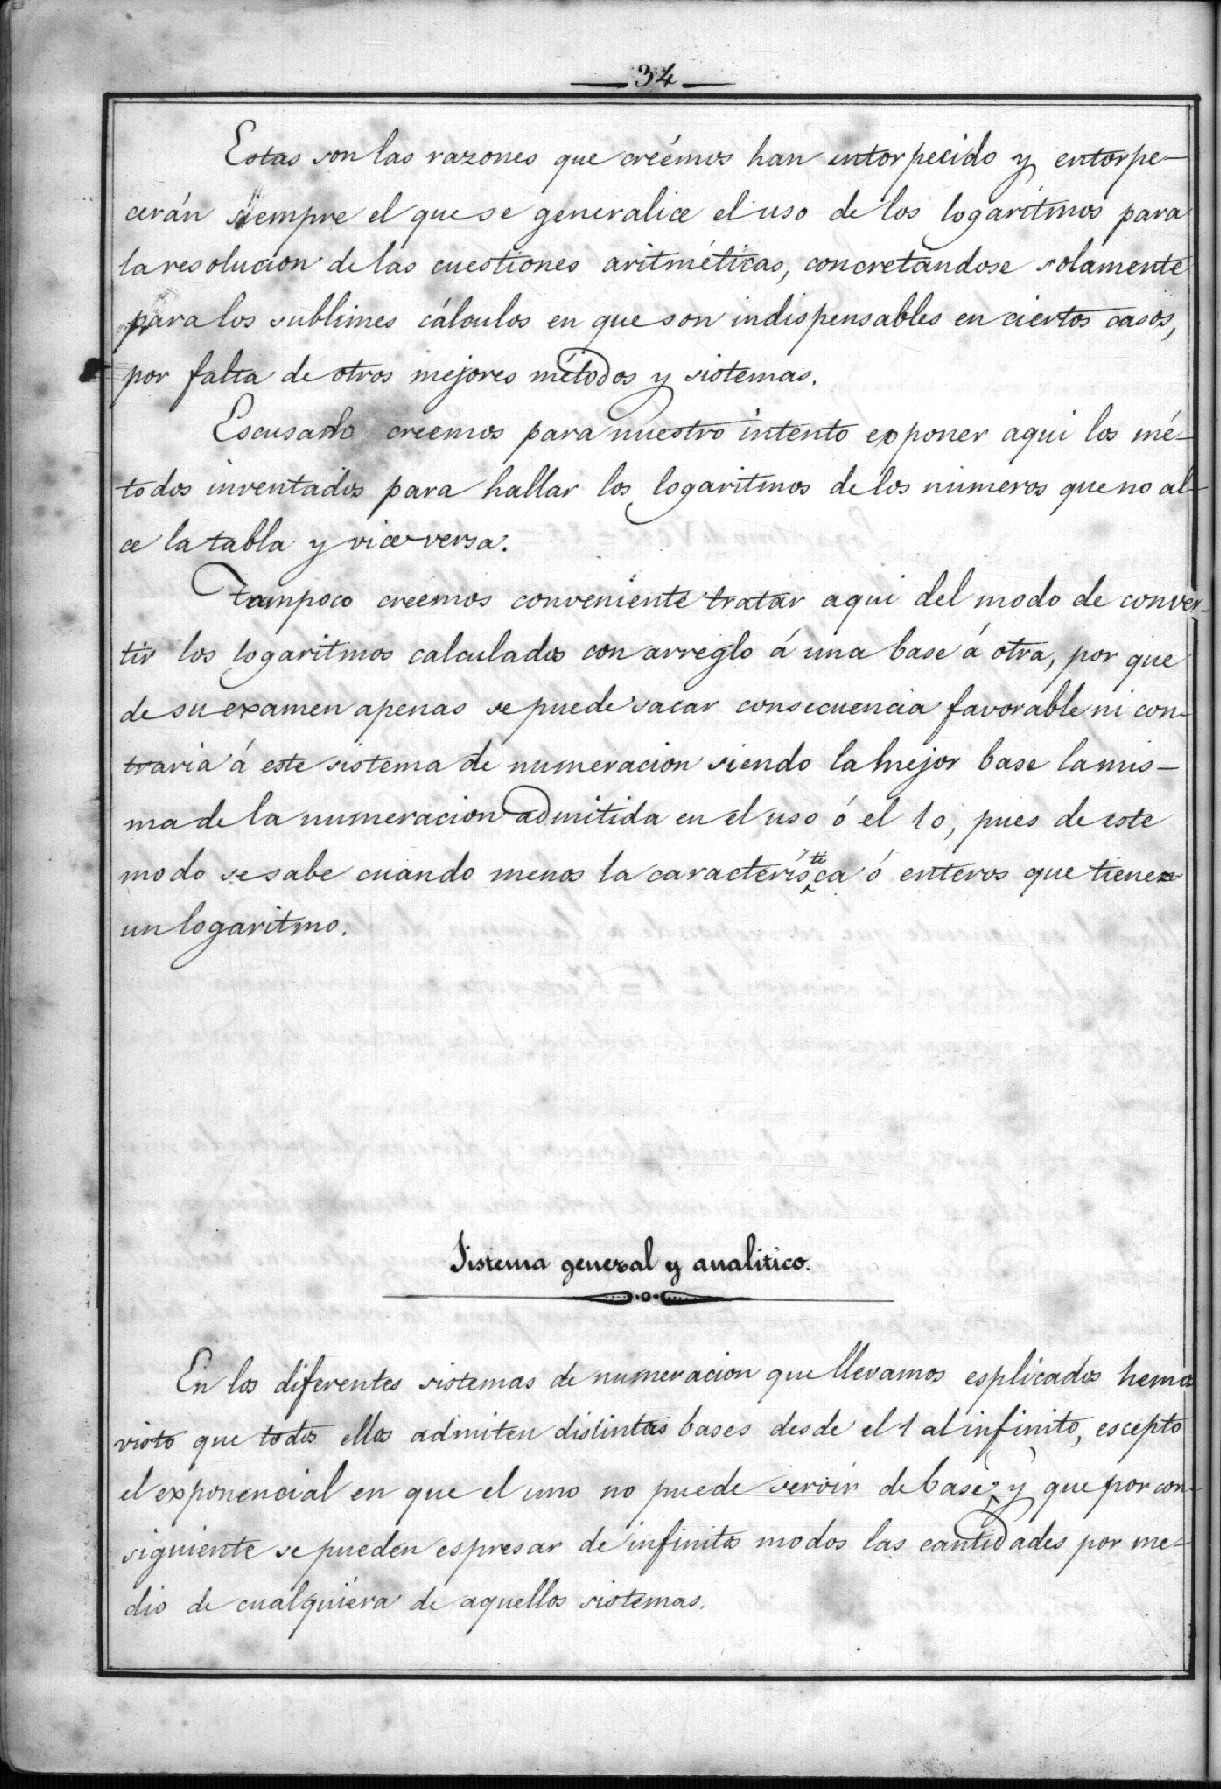 34
Estas son las razones que creémos han entorpecido y entorpe-
cerán siempre el que se generalice el uso de los logaritmos para
la resolucion de las cuestiones aritméticas, concretandose solamente
para los sublimes cálculos en que son indispensables en ciertos casos,
por falta de otros mejores métodos y sistemas.
Escusado creemos para nuestro intento esponer aqui los mé-
todos inventados para hallar los logaritmos de los numeros que no al-
ce la tabla y vice versa.
Tampoco creemos conveniente tratar aqui del modo de conver-
tir los logaritmos calculados con arreglo á una base á otra, por que
de su examen apenas se puede sacar consecuencia favorable ni con-
traria á este sistema de numeracion siendo la mejor base la mis-
ma de la numeracion admitida en el uso ó el 10, pues de este
modo se sabe cuando menos la caracteristica ó enteros que tienen
un logaritmo.
Sistema general y analitico.
En los diferentes sistemas de numeracion que llevamos esplicados hemos
visto que todos ellos admiten distintas bases desde el 1 al infinito, escepto
el exponencial en que el uno no puede servir de base, y que por con-
siguiente se pueden espresar de infinitos modos las cantidades por me-
dio de cualquiera de aquellos sistemas.